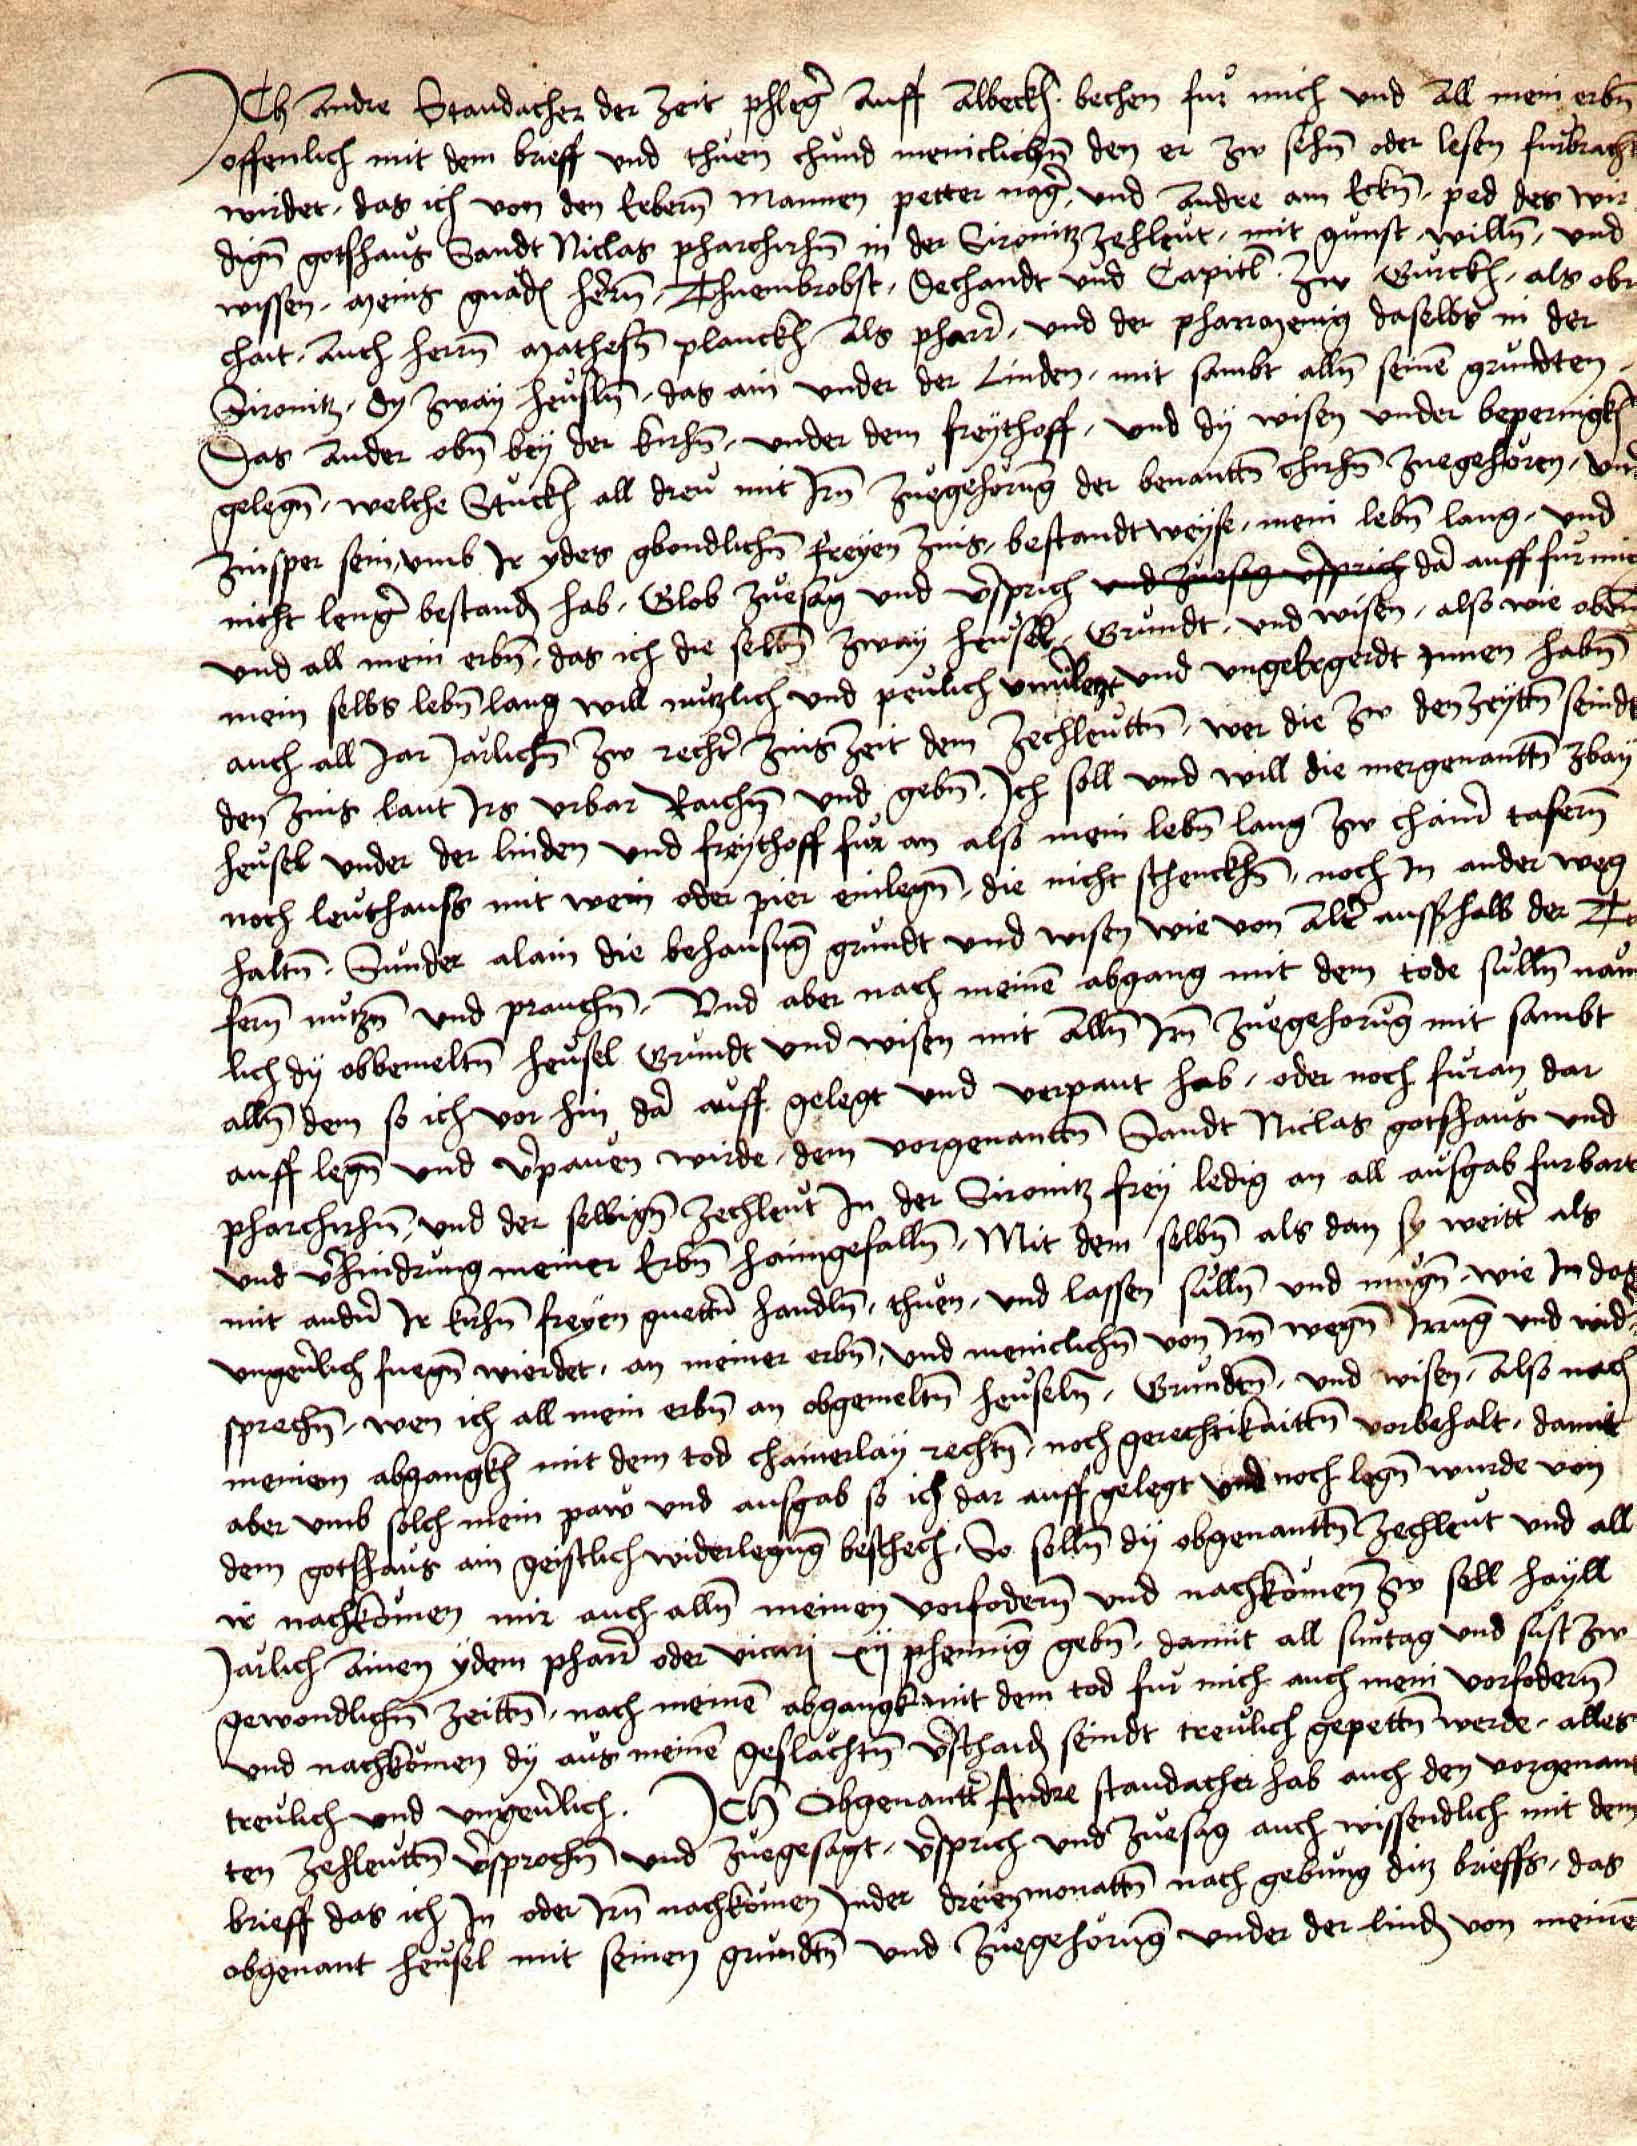 Ich Andre Staudacher der Zeit phleger Auff Albeckh bechen fur mich und all mein erbn
offenlich mit dem brieff und thuen chund meniclichn den er zw sehn oder lesen furbracht
wirdet, das ich von den Erbern Mannen petter nagl, und Andre am Ekn, ped des wir
dign gotshaus Sandt Niclas pharchirhn in der Sironitz zehleut, mit gunst, willn, und
wissen, meins gnad herrn, Thuembrobst, Dechandt und Capitl zw Gurckh, als obr
chait, Auch herrn Mathesn planckh Als pharr, und der pharmenig daselbs in der
Sironitz, dy zway heusln, das ain under der Linden, mit sambt alln seinen grundten,
Das ander obn bey der kirhn, under dem freythoff, und dy wisen under bepernigkh
gelegn, welche Stuckh all dreu mit Irn zuegehorung der benanttn chirhn zuegehoren, und
zinsper sein, umb Ir ydes gbondlichn freyen zins, bestandt weyse, mein lebn lang, und
nicht lenger bestand hab, Glob zuesag und versprich und zuesag versprich dar auff fur mich
und all mein erbn, das ich die selbn zway heusel, Grundt, und wisen, also wie oben
mein selbs lebn lang will nutzlich und peulich unverletzt und ungebegerdt Innen habn
auch all Jar Jarlichn zw rechter zins zeit dem zechleuttn, wer die zw den zeyttn seindt
den zins laut Irs urbar Raichn und gebn, Ich soll und will die mergenanttn zbay
heusel under der linden und freythoff fur an also mein lebn lang zw chainer tafern
noch leuthauss mit wein oder pier einlegn, die nicht schenckhn, noch In ander weg
haltn, Sunder alain die behausung grundt und wisen wie von Alter ausshalb der Ta
fern nutzn und prauchn, Und aber nach meinem abgang mit dem tode sulln nam
lich dy obbemeltn heusel Grundt und wisen mit Alln Irn zuegehorung mit sambt
alln dem so ich vor hin dar auff gelegt und verpaut hab, oder noch furan dar
auff legn und verpauen wirde, dem vorgenanttn Sandt Niclas gotshaus und
pharchirhn, und der selbign zechleut In der Sironitz frey ledig an all ausgab furbart
und verhindrung meiner Erbn haimgefalln, Mit dem selbn als dan sy weitter als
mit andern Ir kirhn freyen guettern handln, thuen, und lassen sulln und mugn, wie In das
ungeverlich fuegn wierdet, an meiner erbn, und meniclichn von Irn wegn Irrung und wid
sprechn, wen ich all mein erbn an obgemeltn heuseln, Grundtn, und wisen, Also nach
meinem abgangkh mit dem tod chainerlay rechtn, noch gerechtikaittn vorbehalt, damit
aber umb solch mein paw und ausgab so ich dar auff gelegt und noch legn wurde von
dem gotshaus ain geistlich widerlegung beschech, So solln dy obgenanttn zechleut und all
ir nachkomen mir auch alln meinen vorfodern und nachkomen zw sell hayll
Jarlich Ainen ydem pharrer oder vicari xij phening gebn, damit all suntag und sust zw
gewondlichn zeittn, nach meinem abgangk mit dem tod fur mich auch mein vorfodern
und nachkomen dy aus meinem geslachtn verschaid seindt treulich gepettn werde, alles
treulich und ungeverlich. Ich Obgenantter Andre staudacher hab auch den vorgenant
ten zehleuttn versprochn und zuegesagt, versprich und zuesag auch wissendlich mit dem
brieff das ich In oder Irn nachkomen Inder dreien monattn nach gebung ditz brieffs, das
obgenant heusel mit seinen grundtn und zuegehorung under der lind von meinem